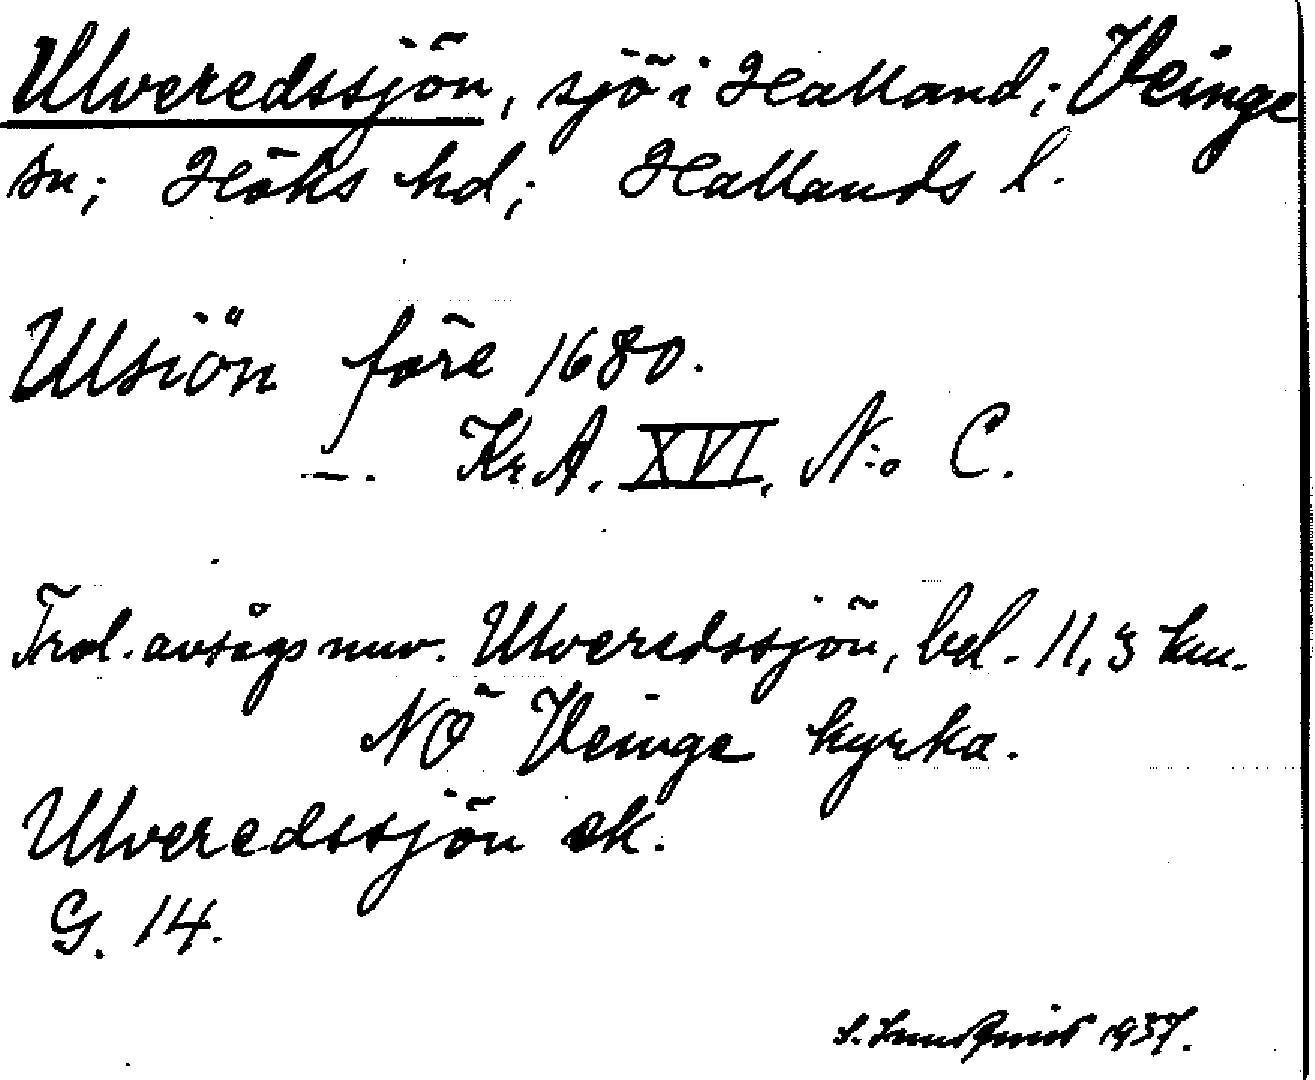 Ulveredssjön, sjö i Halland; Veinge
sn; Höks hd; Hallands l.
Ulsiön före 1680.
—. Kr.A. XVI, N:o C.
Trol. avsågs nuv. Ulveredssjön, bel. 11,3 km.
NÖ Veinge kyrka.
Ulveredssjön ek.
G. 14.
S. 1937.